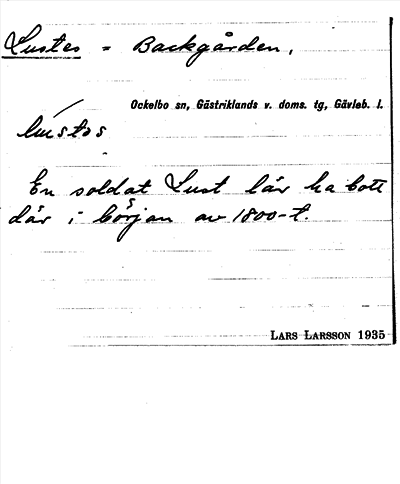 Lustes = Backgården,
Ockelbo sn, Gästriklands v. doms. tg, Gävleb. l.
lustəs
En soldat Lust lär ha bott
där i början av 1800-t.
LARS LARSSON 1935